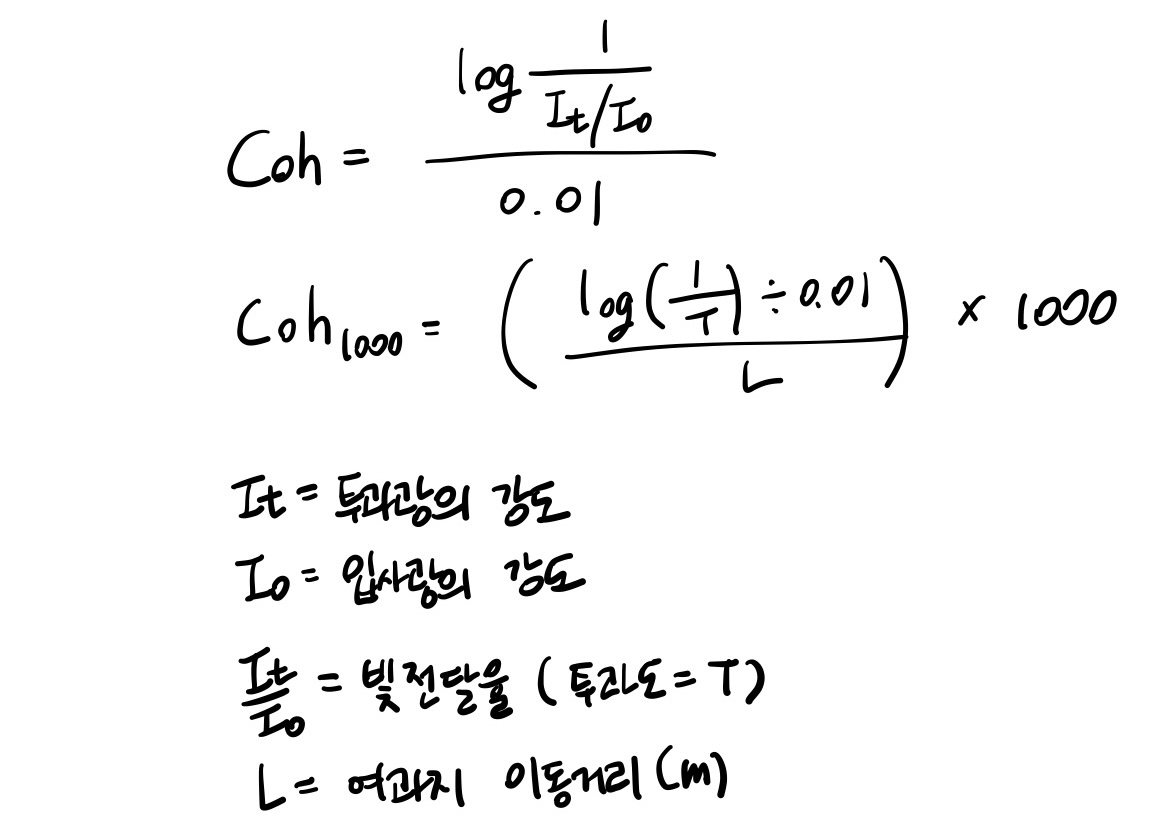 Coh = log 1/(It/Io) / 0.01
Coh₁₀₀₀ = ( log(1/T) ÷ 0.01 / L ) × 1000
It = 투과광의 강도
Io = 입사광의 강도
It/Io = 빛전달율 (투과도 = T)
L = 여과지 이동거리 (m)